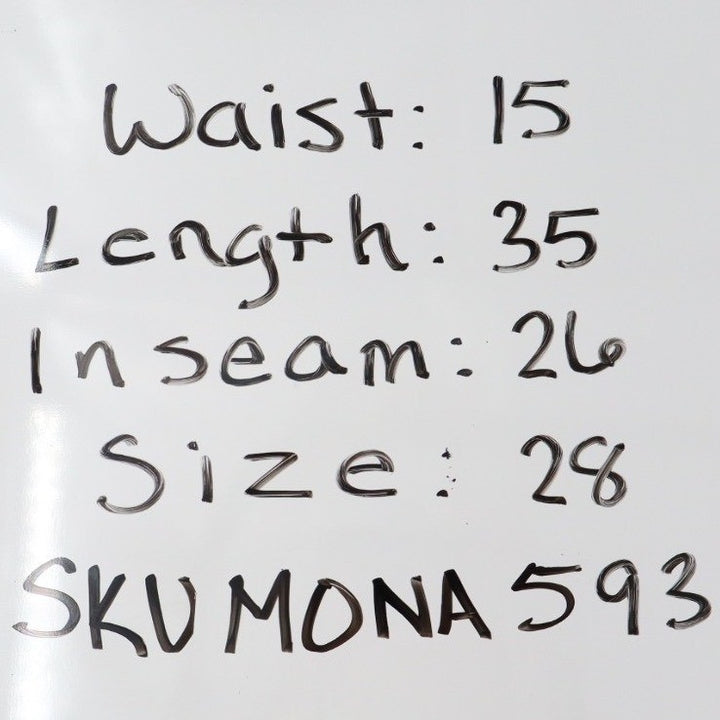 Waist: 15
Length: 35
Inseam: 26
Size: 28
SKU MONA 593